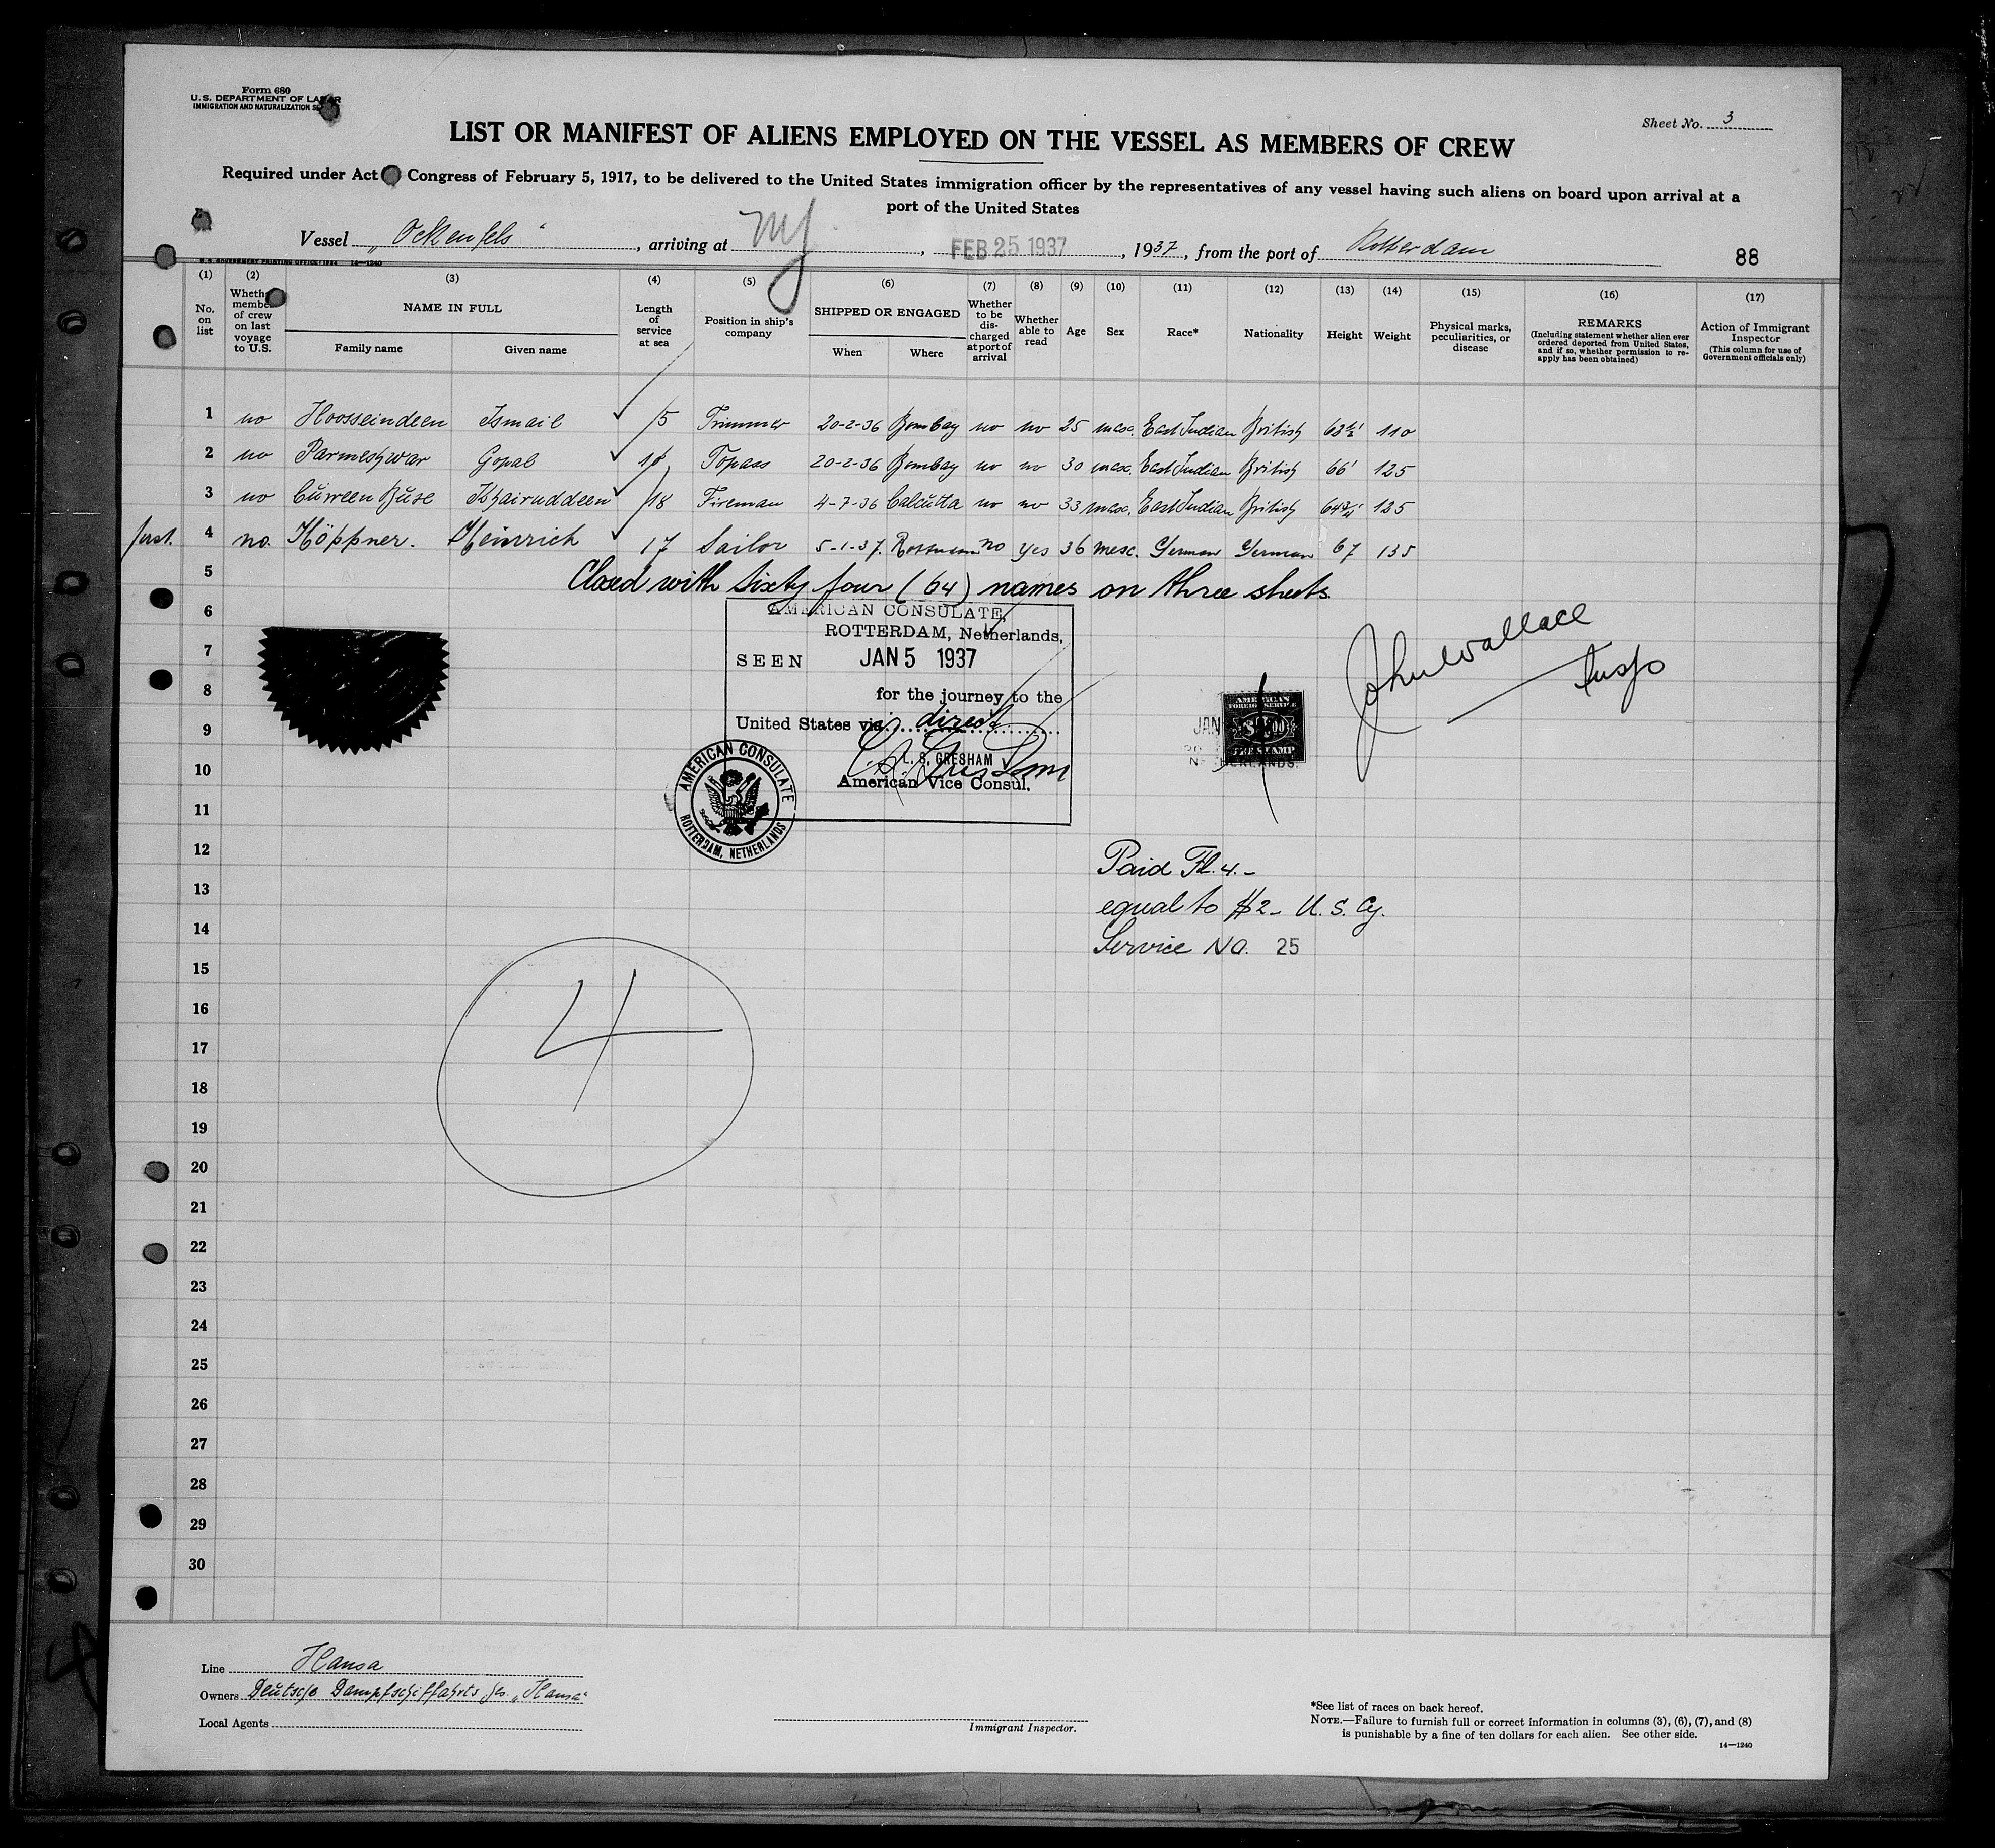 Form 680
U. S. DEPARTMENT OF LABOR
IMMIGRATION AND NATURALIZATION
Sheet No. 3
LIST OR MANIFEST OF ALIENS EMPLOYED ON THE VESSEL AS MEMBERS OF CREW
Required under Act Congress of February 5, 1917, to be delivered to the United States immigration officer by the representatives of any vessel having such aliens on board upon arrival at a
port of the United States
Vessel „Ockenfels“, arriving at NY, FEB 25 1937, 1937, from the port of Rotterdam
88
U. S. GOVERNMENT PRINTING OFFICE 14—1240
(1) (2) (3) (4) (5) (6) (7) (8) (9) (10) (11) (12) (13) (14) (15) (16) (17)
No. on list
Whether member of crew on last voyage to U.S.
NAME IN FULL
Family name Given name
Length of service at sea
Position in ship's company
SHIPPED OR ENGAGED
When Where
Whether to be discharged at port of arrival
Whether able to read
Age
Sex
Race*
Nationality
Height
Weight
Physical marks, peculiarities, or disease
REMARKS
(Including statement whether alien ever ordered deported from United States, and if so, whether permission to re-apply has been obtained)
Action of Immigrant Inspector
(This column for use of Government officials only)
1 no Hoosseindeen Ismail ✓ 15 Trimmer 20-2-36 Bombay no no 25 masc. East Indian British 63½' 110
2 no Parmeshwar Gopal ✓ Topass 20-2-36 Bombay no no 30 masc. East Indian British 66' 125
3 no Cŭreen Bŭse Khairuddeen ✓ 18 Fireman 4-7-36 Calcŭtta no no 33 masc. East Indian British 125
4 no. Höppner. Heinrich ✓ 17 Sailor 5-1-37. no yes 36 masc. German German 67 135
5
Closed with sixty four (64) names on three sheets
6
AMERICAN CONSULATE,
ROTTERDAM, Netherlands,
7
SEEN JAN 5 1937
8
for the journey to the
John Wallace
Insp
9
United States via direct
AMERICAN
FOREIGN SERVICE
$2.00
FEE STAMP
JAN
NETHERLANDS.
10
L. S. GRESHAM
American Vice Consul.
AMERICAN CONSULATE
ROTTERDAM, NETHERLANDS
11
12
Paid Fl. 4.-
13
equal to $2- U. S. Cy.
14
Service No. 25
15
16
4
17
18
19
20
21
22
23
24
25
26
27
28
29
30
Line Hansa
Owners Deŭtsche Dampfschiffahrts Ges. „Hansa“
Local Agents
Immigrant Inspector.
*See list of races on back hereof.
NOTE.—Failure to furnish full or correct information in columns (3), (6), (7), and (8)
is punishable by a fine of ten dollars for each alien. See other side.
14—1240